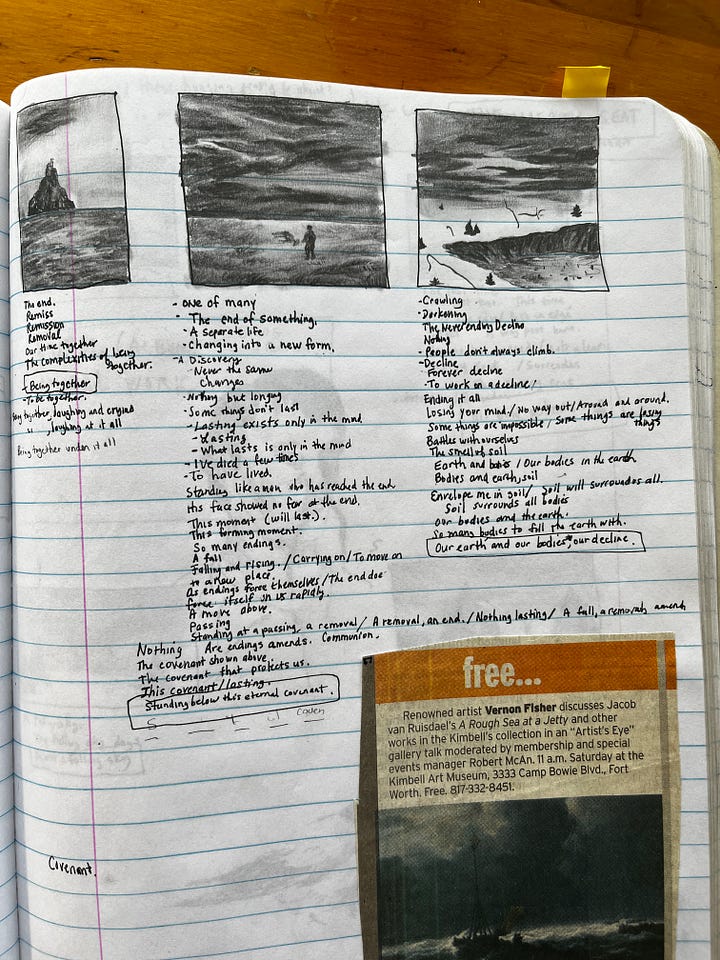 The end.
Remiss
Remission
Removal
Our time together
The complexities of being together.
- Being together
- To be together.
together, laughing and crying
" , laughing at it all
Being together under it all
- one of many
- The end of something.
- A separate life
- Changing into a new form.
- A Discovery
Never the same
Changes
- Nothing but longing
- Some things don't last
- Lasting exists only in the mind
- Lasting
- What lasts is only in the mind
- I've died a few times
- To have lived.
Standing like a man who has reached the end
His face showed no fear at the end.
This moment (will last.)
This forming moment.
So many endings.
A fall
Falling and rising. / Carrying on / To move on
to a new place.
As endings force themselves / The end doe
force itself on us rapidly.
A move above.
Passing
Standing at a passing, a removal / A removal, an end. / Nothing lasting / A fall, a removal, amends
Nothing Are endings amends. Communion.
The covenant shown above.
The covenant that protects us.
This covenant / lasting.
Standing below this eternal covenant.
Coven
Covenant.
- Crawling
- Darkening
The Never ending Decline
Nothing
- People don't always climb.
- Decline
Forever decline
- To work on a decline!
Ending it all
Losing your mind. / No way out / Around and around.
Some things are impossible / Some things are losing things
Battles with ourselves
The smell of soil
Earth and bodies / Our bodies in the earth
Bodies and earth, soil
Envelope me in soil / Soil will surround us all.
Soil surrounds all bodies
Our bodies and the earth.
So many bodies to fill the earth with.
Our earth and our bodies, our decline.
free...
Renowned artist Vernon Fisher discusses Jacob
van Ruisdael's A Rough Sea at a Jetty and other
works in the Kimbell's collection in an "Artist's Eye"
gallery talk moderated by membership and special
events manager Robert McAn. 11 a.m. Saturday at the
Kimbell Art Museum, 3333 Camp Bowie Blvd., Fort
Worth. Free. 817-332-8451.